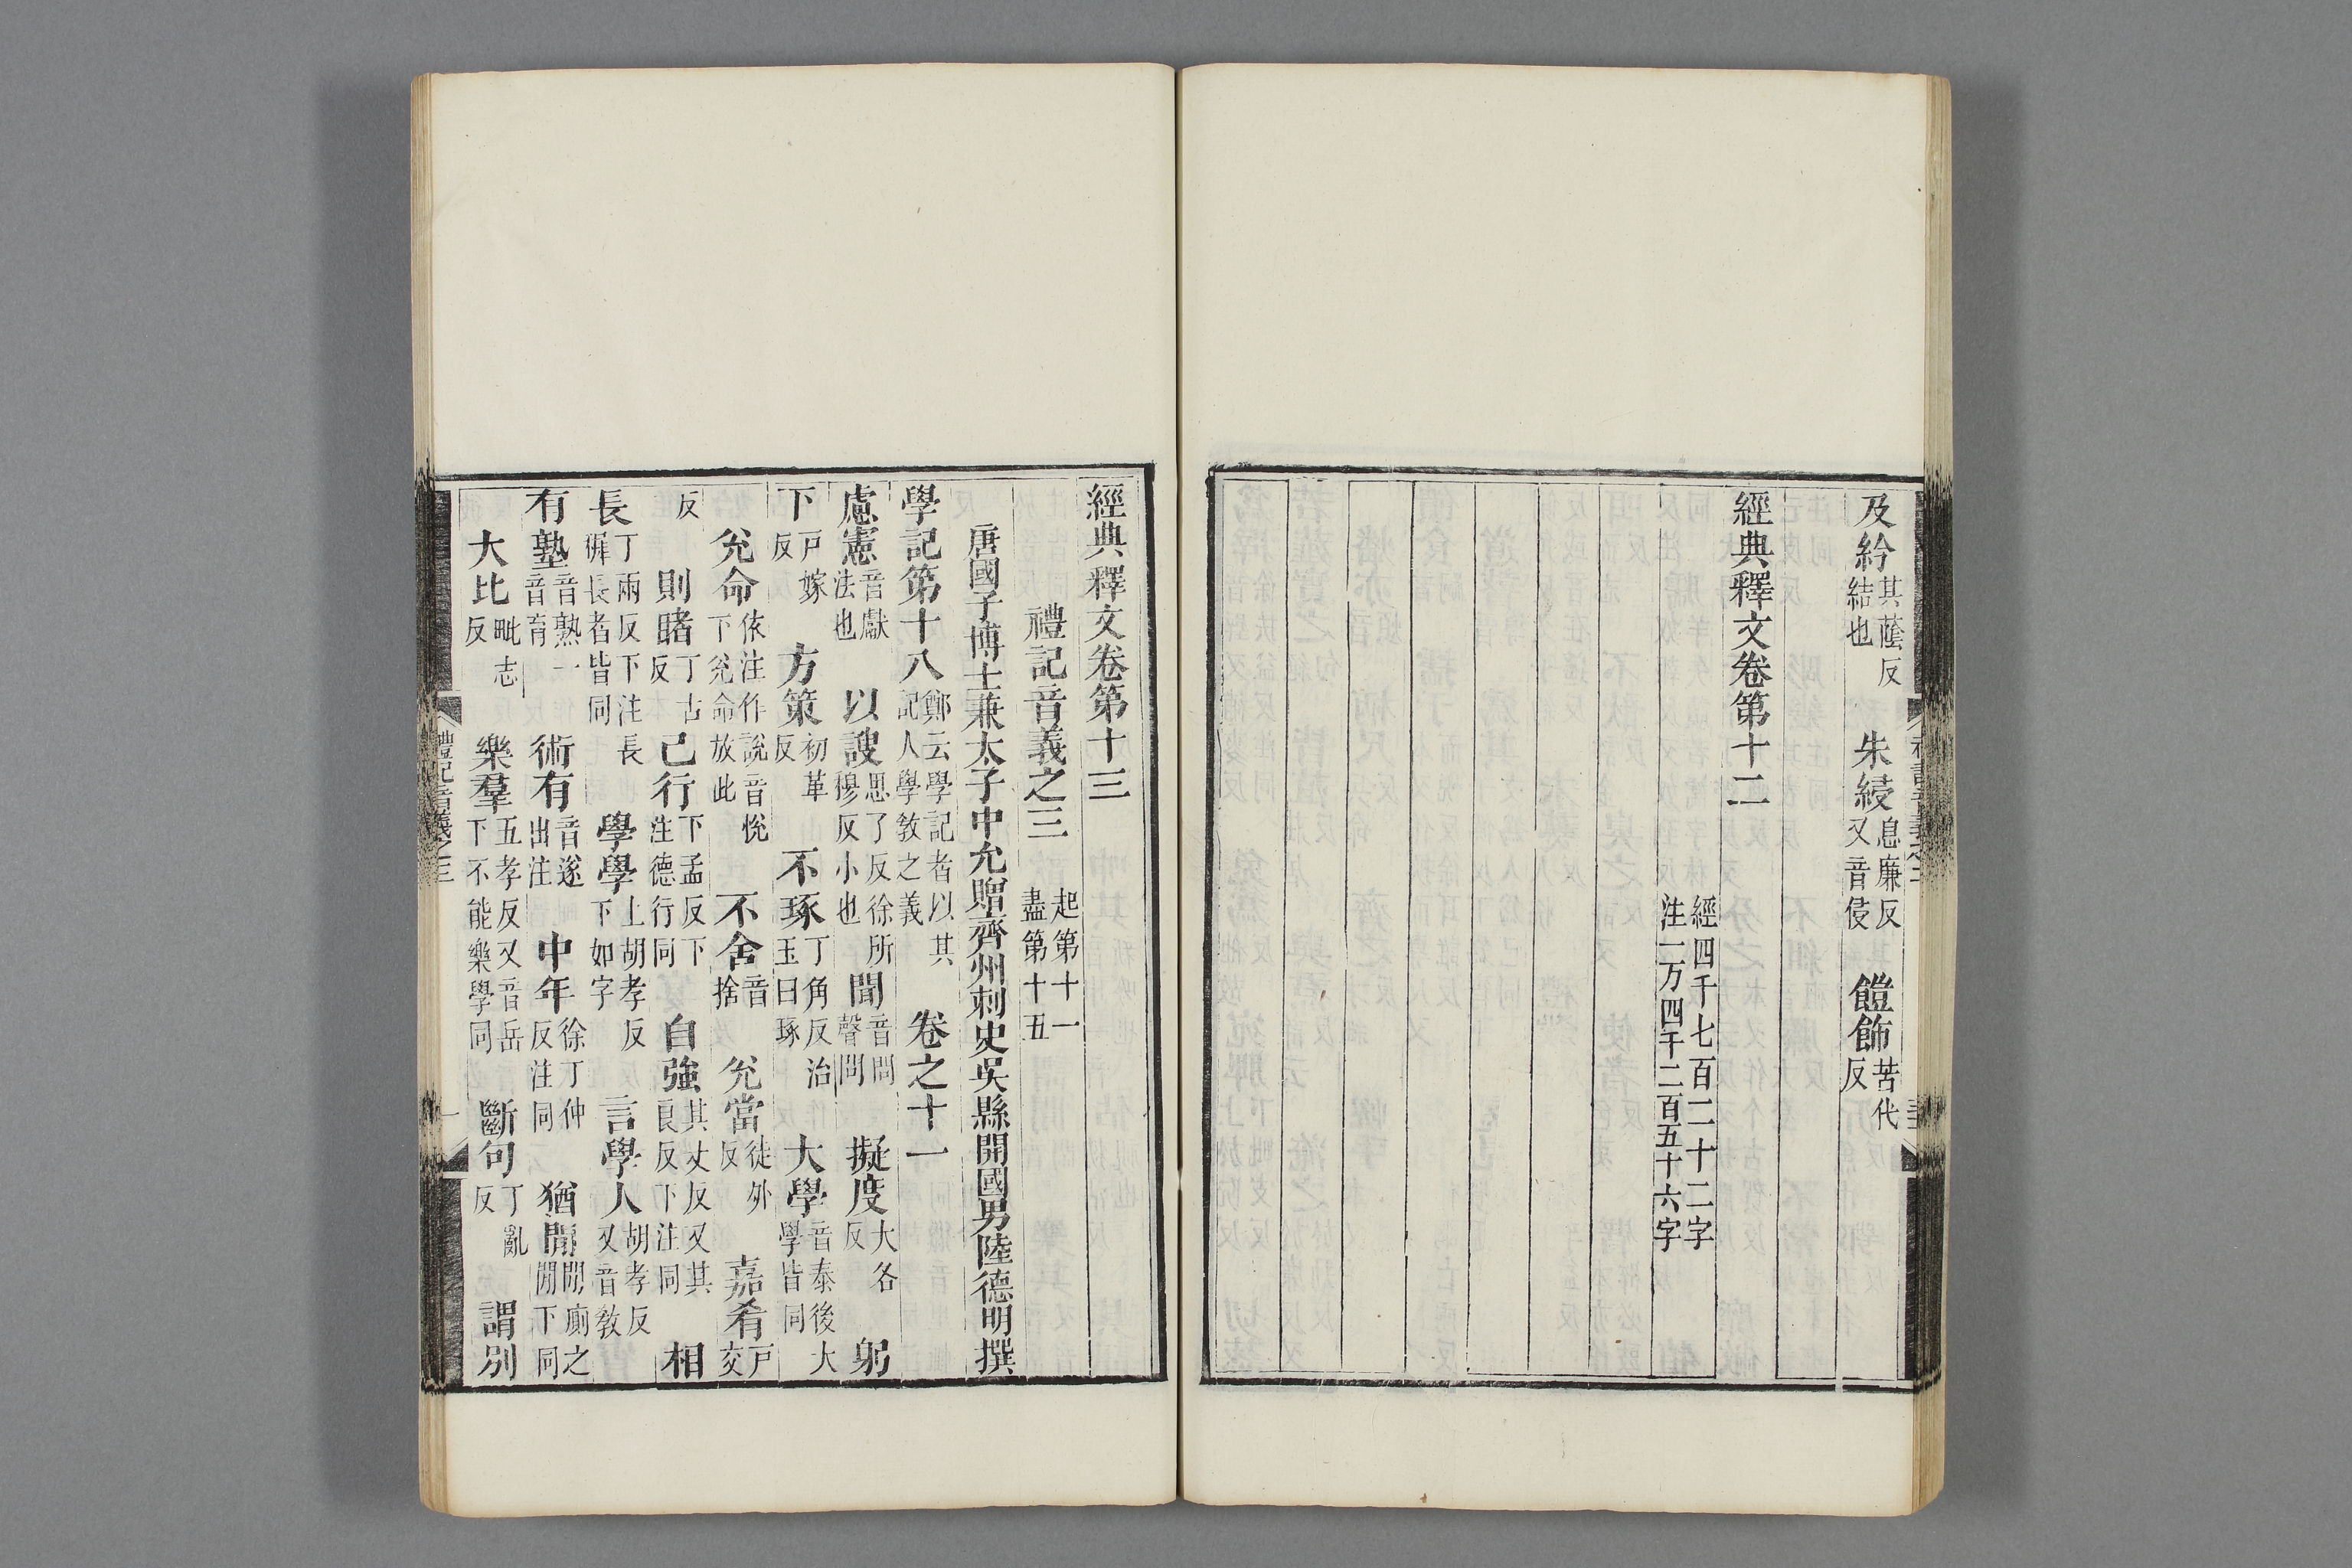 及紟其蔭反結也　朱綅息廉反又音侵　饐飾苦代反
經典釋文卷第十二
經四千七百二十二字
注一万四千二百五十六字
經典釋文卷第十三
禮記音義之三起第十一盡第十五
唐國子博士兼太子中允贈齊州刺史吳縣開國男陸德明撰
學記第十八鄭云學記者以其記人學教之義　卷之十一
慮憲音獻法也　以謏思了反徐所穆反小也　聞音問聲問　擬度大各反　躬
下戶嫁反　方策初革反　不琢丁角反治玉曰琢　大學音泰後大學皆同
兊命依注作說音悅下兊命放此　不舍音捨　兊當徒外反　嘉肴戶交
反　則睹丁古反　己行下孟反下注德行同　自強其丈反又其良反下注同　相
長丁兩反下注長穉長者皆同　學學上胡孝反下如字　言學人胡孝反又音教
有塾音熟一音育　術有音遂出注　中年徐丁仲反注同　猶閒閒廁之閒下同
大比毗志反　樂羣五孝反又音岳下不能樂學同　斷句丁亂反　謂別
禮記音義之三　一